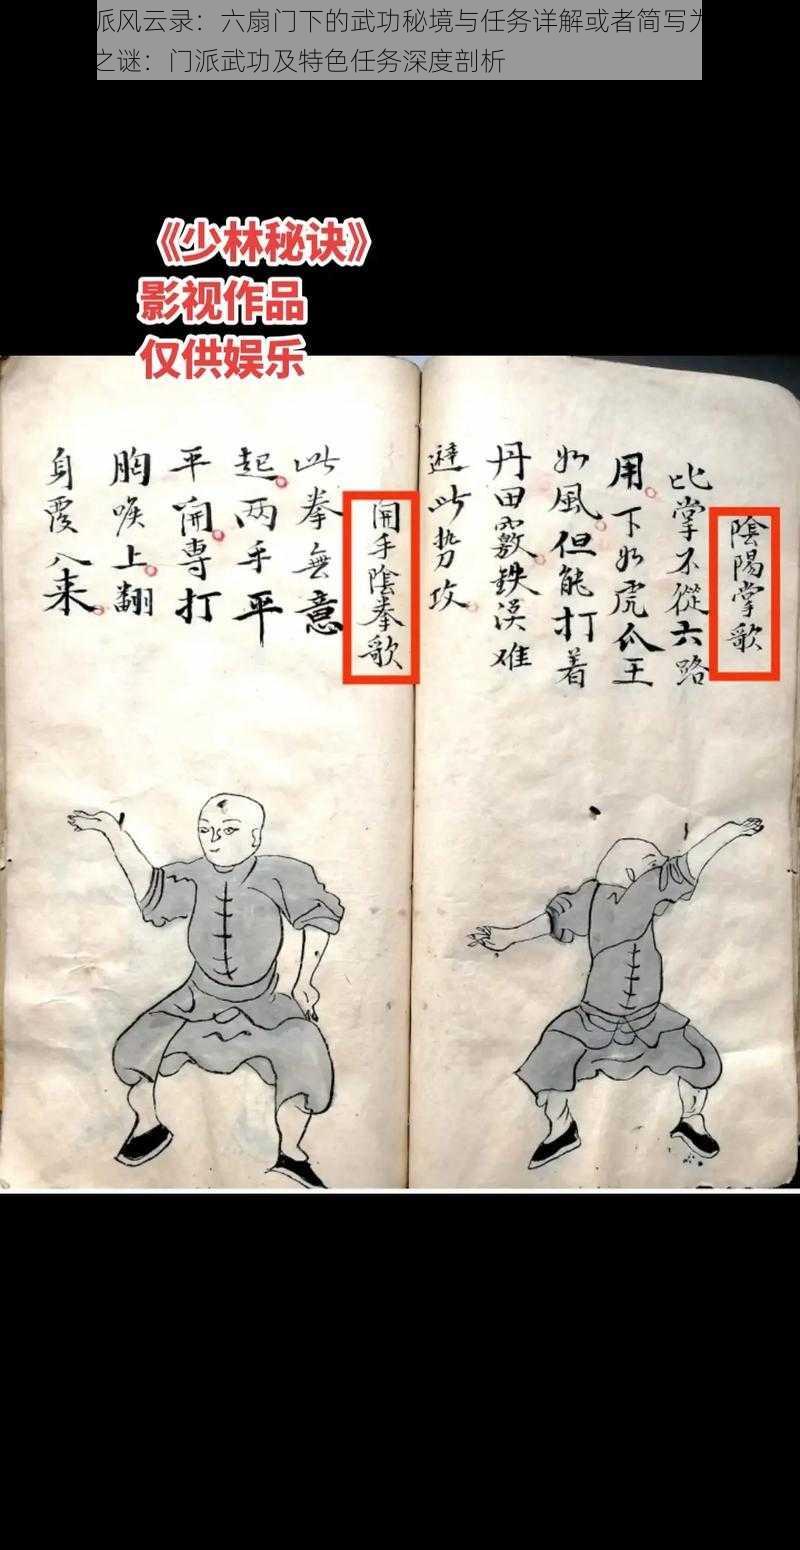 派风云录：六扇门下的武功秘境与任务详解或者简写为
之谜：门派武功及特色任务深度剖析
《少林秘诀》
影视作品
仅供娱乐
陰陽掌歌
此掌不從六路
用下如虎爪王
如風但能打着
丹田竅鉄漢难
避此势攻
開手陰拳歌
此拳無意
起两手平
平開専打
胸喉上翻
身覆入来